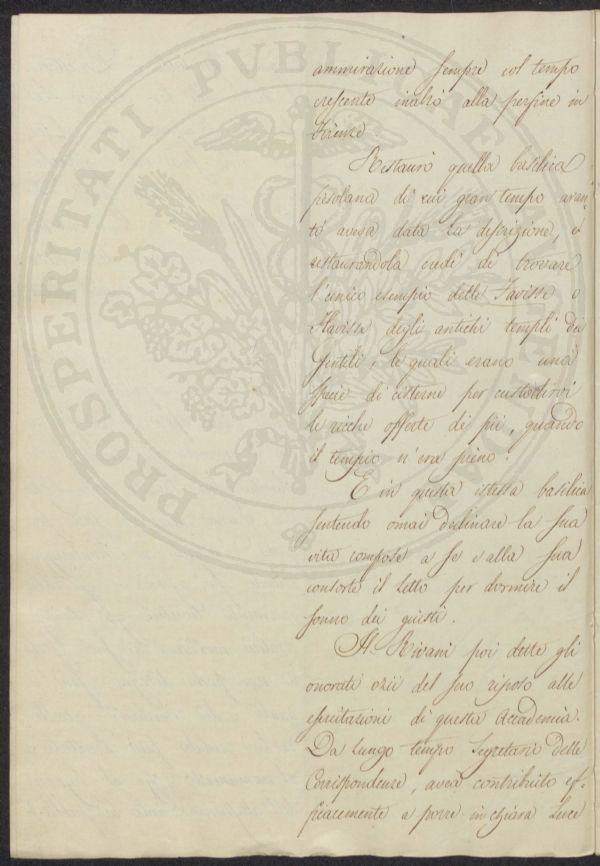 PROSPERITATI PVBLICAE AVGENDAE
ammirazione sempre col tempo
crescente inalzò alla perfine in
Firenze
Restaurò quella basilica
fiesolana di cui gran tempo avan:
ti avea data la descrizione, e
restaurandola credè di trovare
l'unico esempio delle Favisse o
Flavisse degli antichi templi dei
Gentili, le quali erano una
specie di cisterne per custodirvi
le ricche offerte de' pii, quando
il tempio n'era pieno.
E in questa istessa basilica
sentendo omai declinare la sua
vita compose a se e alla sua
consorte il letto per dormire il
sonno dei giusti.
Il Rivani poi dette gli
onorati ozii del suo riposo alle
esercitazioni di questa Accademia.
Da lungo tempo Segretario delle
Corrispondenze, avea contribuito ef-
ficacemente a porre in chiara luce